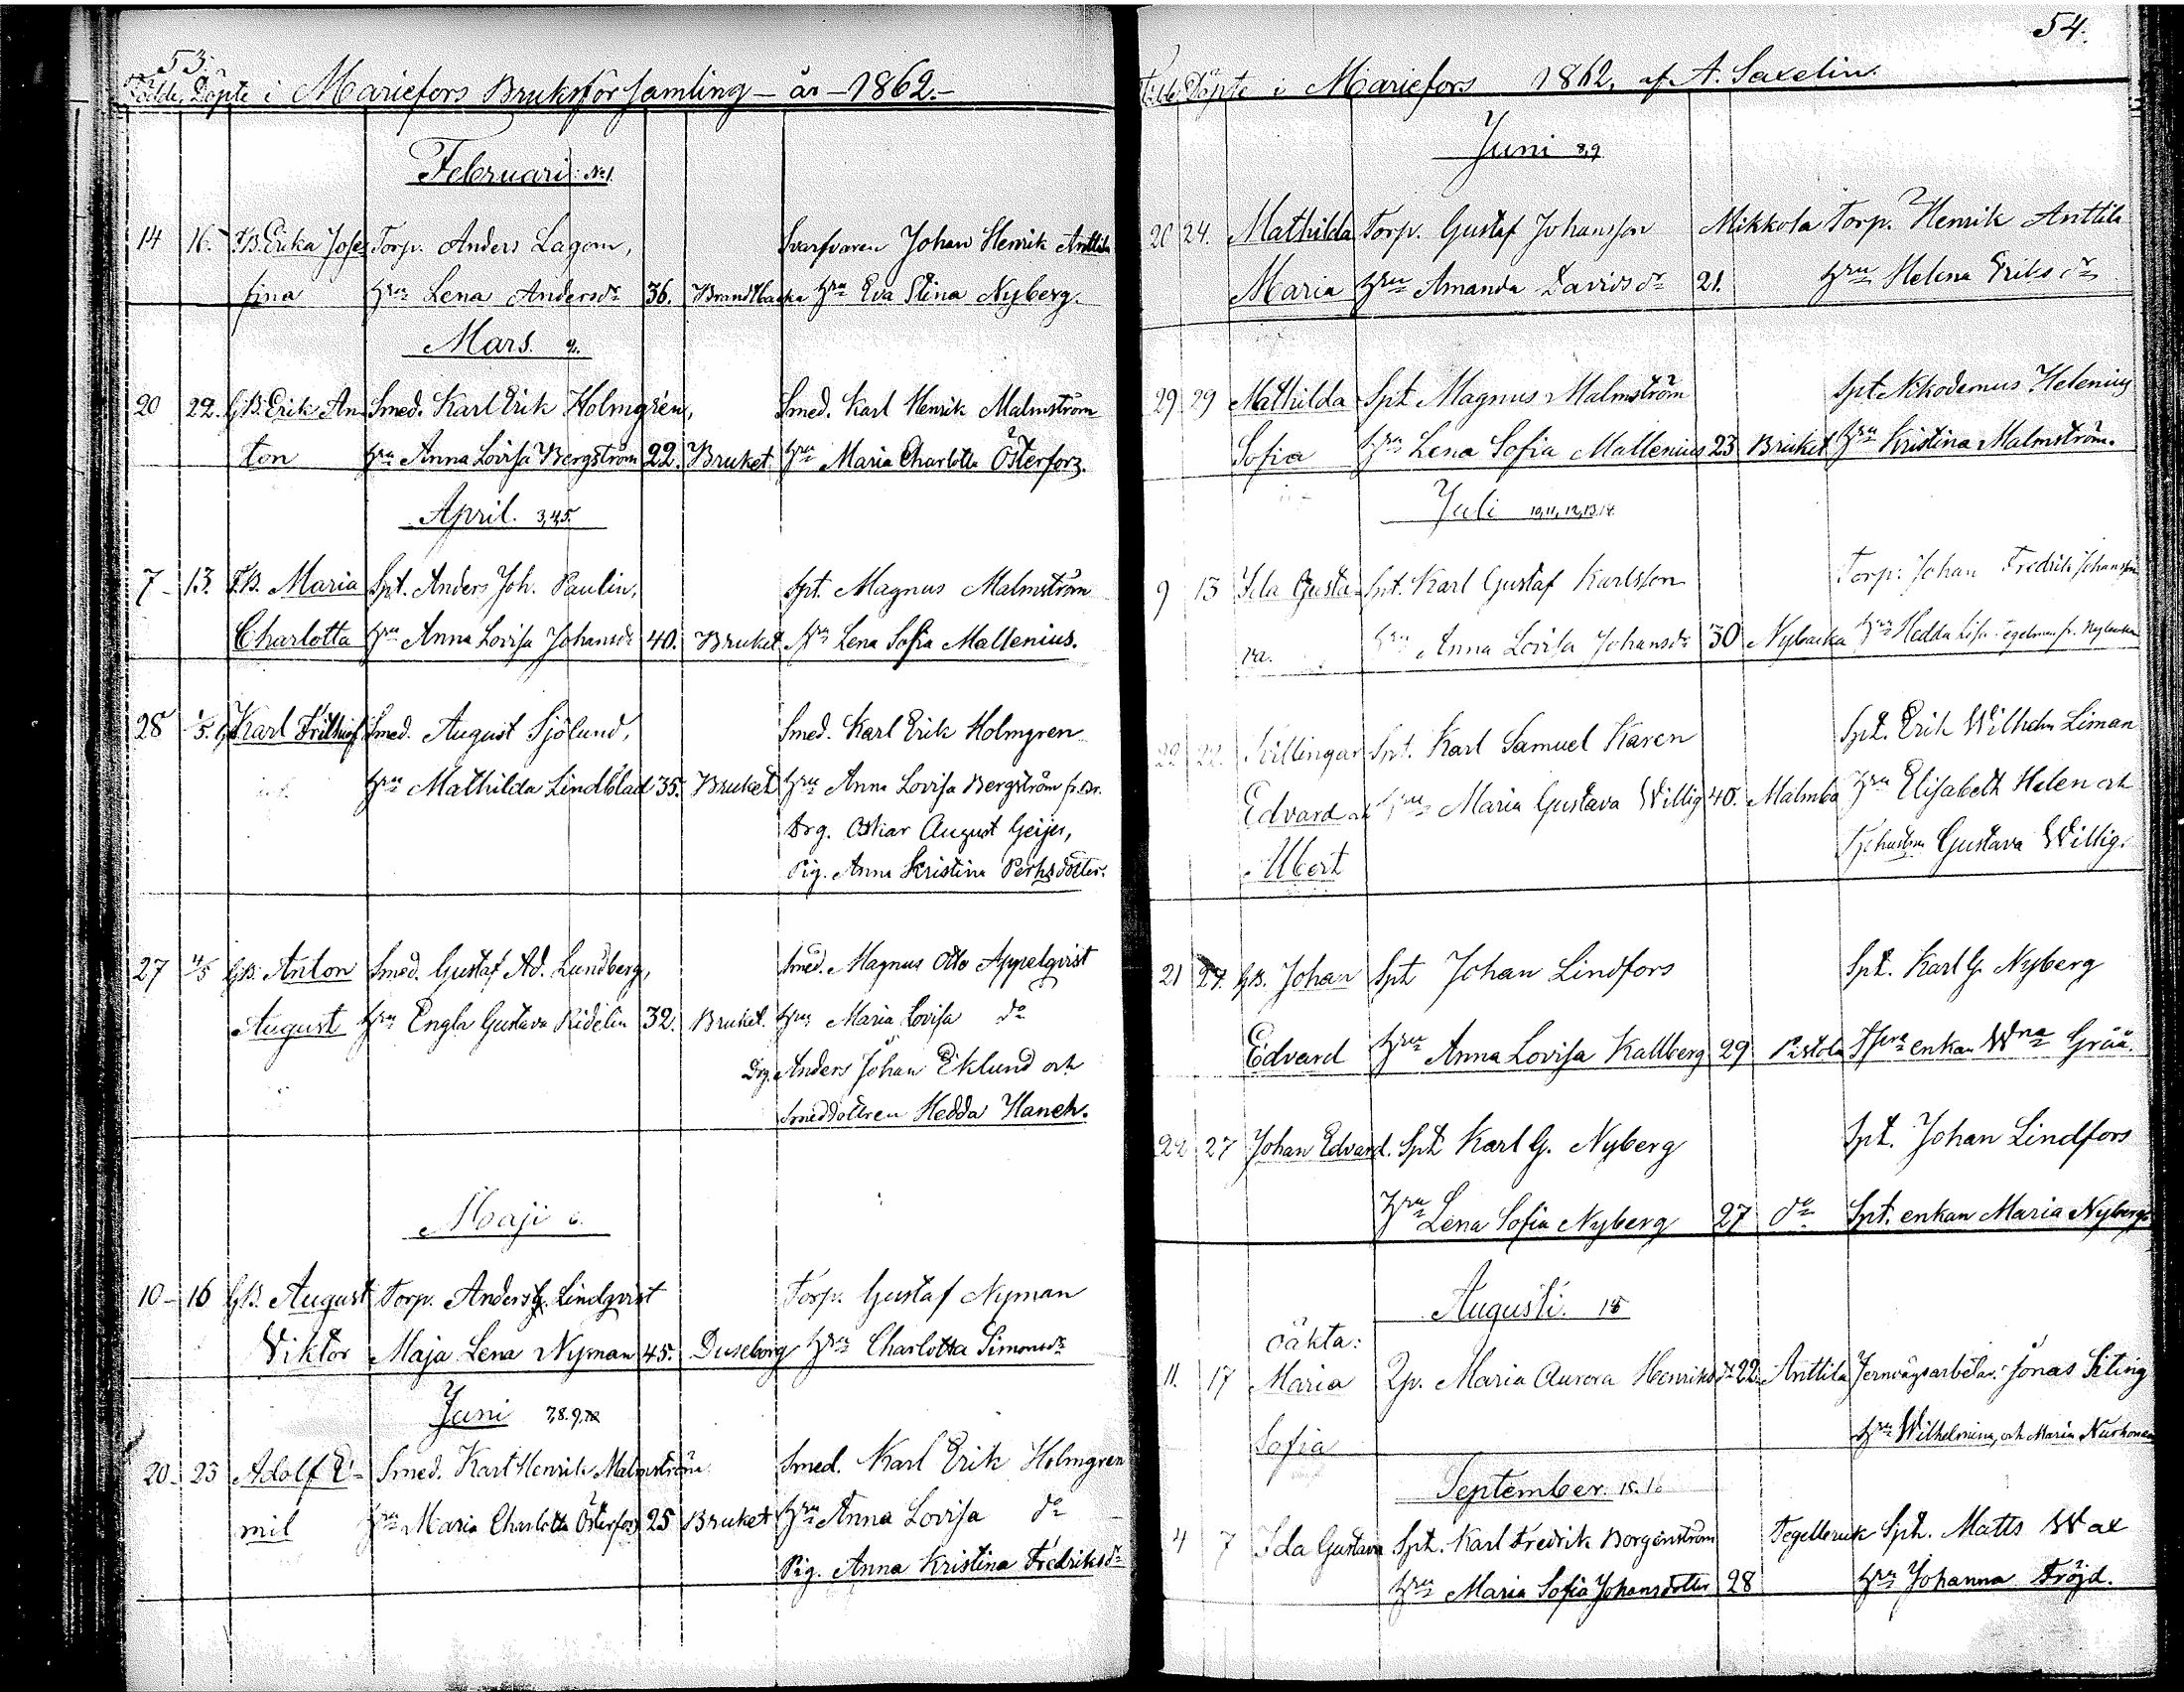 53.
Födde Döpte i Mariefors Bruksförsamling - år - 1862.-
Februari: No 1.
14 16. F.B. Erika Jose Torp. Anders Lagom, Svarfvaren Johan Henrik Anttila
fina hru Lena Andersdr 36. Brandtbacka hru Eva Stina Nyberg.
Mars. 2.
20 22. G.B. Erik An Smed. Karl Erik Holmgrén, Smed. Karl Henrik Malmström
ton hru Anna Lovisa Bergström 22. Bruket hru Maria Charlotta Österforz.
April. 3,4,5.
7 - 13. F.B. Maria Spt. Anders Joh. Paulin, Spt. Magnus Malmström
Charlotta hru Anna Lovisa Johansdr 40. Bruket hru Lena Sofia Mallenius.
28 1/5. G. Karl Frithiof Smed. August Sjölund, Smed. Karl Erik Holmgren
hru Mathilda Lindblad 35. Bruket hru Anna Lovisa Bergström fr. Br.
Drg. Oskar August Geijer,
Pig. Anna Kristina Perhsdotter.
27 4/5 G.B. Anton Smed. Gustaf Ad. Lundberg, Smed. Magnus Otto Appelqvist
August hru Engla Gustava Ridelin 32. Bruket. hru Maria Lovisa do
Drg. Anders Johan Eklund och
Smeddottren Hedda Haneh.
Maji 6.
10 - 16 G.B. August Torp. Anders G. Lindqvist Torp. Gustaf Nyman
Viktor Maja Lena Nyman 45. Duseborg hru Charlotta Simonsdr
Juni 7,8.9,10
20. 23 Adolf E- Smed. Karl Henrik Malmström Smed. Karl Erik Holmgren
mil hru Maria Charlotta Österforz 25 Bruket hru Anna Lovisa do
Pig. Anna Kristina Fredriksdr
54.
Födde Döpte i Mariefors 1862, af A. Saxelin.
Juni 8,9
20 24. Mathilda Torp. Gustaf Johansson Mikkola Torp. Henrik Anttila
Maria hru Amanda Davidsdr 21. hru Helena Eriksdr
29 29 Mathilda Spt Magnus Malmström Spt Nikodemus Helenius
Sofia hru Lena Sofia Mallenius 23 Bruket hru Kristina Malmström.
Juli 10,11,12,13,14.
9 13 Ida Gusta Spt. Karl Gustaf Karlsson Torp. Johan Fredrik Johansson
va. hru Anna Lovisa Johansdr 30 Nybacka hru Hedda Lisa Tegelman fr. Nybacka
22 22 Tvillingar Spt. Karl Samuel Karen Spt. Erik Wilhelm Liman
Edvard och hru Maria Gustava Willig 40. Malmba hru Elisabeth Helen och
Albert Gustava Willig.
21 27. G.B. Johan Spt Johan Lindfors Spt. Karl G. Nyberg
Edvard hru Anna Lovisa Kallberg 29 Pistola enkan Wna Grää.
22 27 Johan Edvard. Spt Karl G. Nyberg Spt. Johan Lindfors
hru Lena Sofia Nyberg 27 do Spt. enkan Maria Nyberg
Augusti. 15
oäkta:
11. 17 Maria Qp. Maria Aurora Henriksdr 22. Anttila Jernvägsarbetar. Jonas Siting
Sofia hru Wilhelmina, och Maria Nurhonen
September. 15.16
4 7 Ida Gustava Spt. Karl Fredrik Borgenström Tegelbruk Spt. Matts Wax
hru Maria Sofia Johansdotter 28 hru Johanna Fröjd.